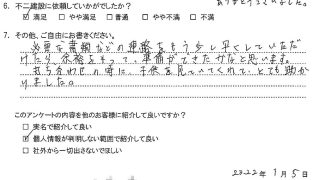 ありがとうございました。
6. 不二建設に依頼していかがでしたか？
☑ 満足 □ やや満足 □ 普通 □ やや不満 □ 不満
7. その他、ご自由にお書きください。
必要な書類などの連絡をもう少し早くしていただ
けたら、余裕をもって、準備ができたかなと思います。
打ち合わせの時に、子供を見ていてくれて、とても助か
りました。
このアンケートの内容を他のお客様に紹介して良いですか？
□ 実名で紹介して良い
☑ 個人情報が判明しない範囲で紹介して良い
□ 社外から一切出さないでほしい
2022年 1月 5日